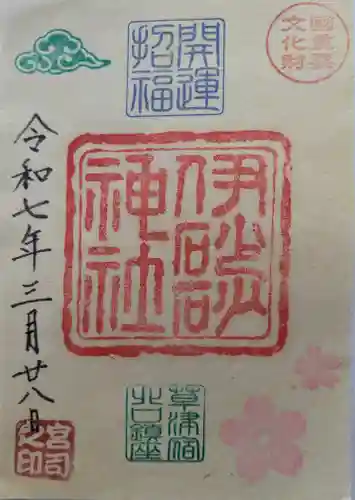 國重要
文化財
開運
招福
伊砂砂
神社
令和七年三月廿八日
草津宿
北口鎮座
宮司
之印